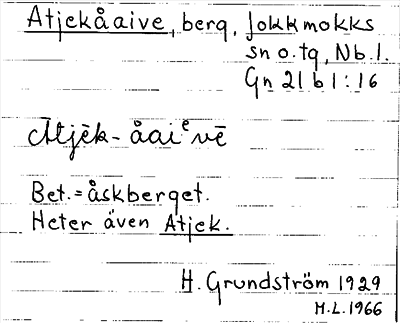 Atjekåaive, berg, Jokkmokks
sn o. tg, Nb. l.
Gn 21 b 1:16
Ātjēk- åaiᵉvē
Bet. = åskberget.
Heter även Atjek.
H. Grundström 1929
M.L. 1966